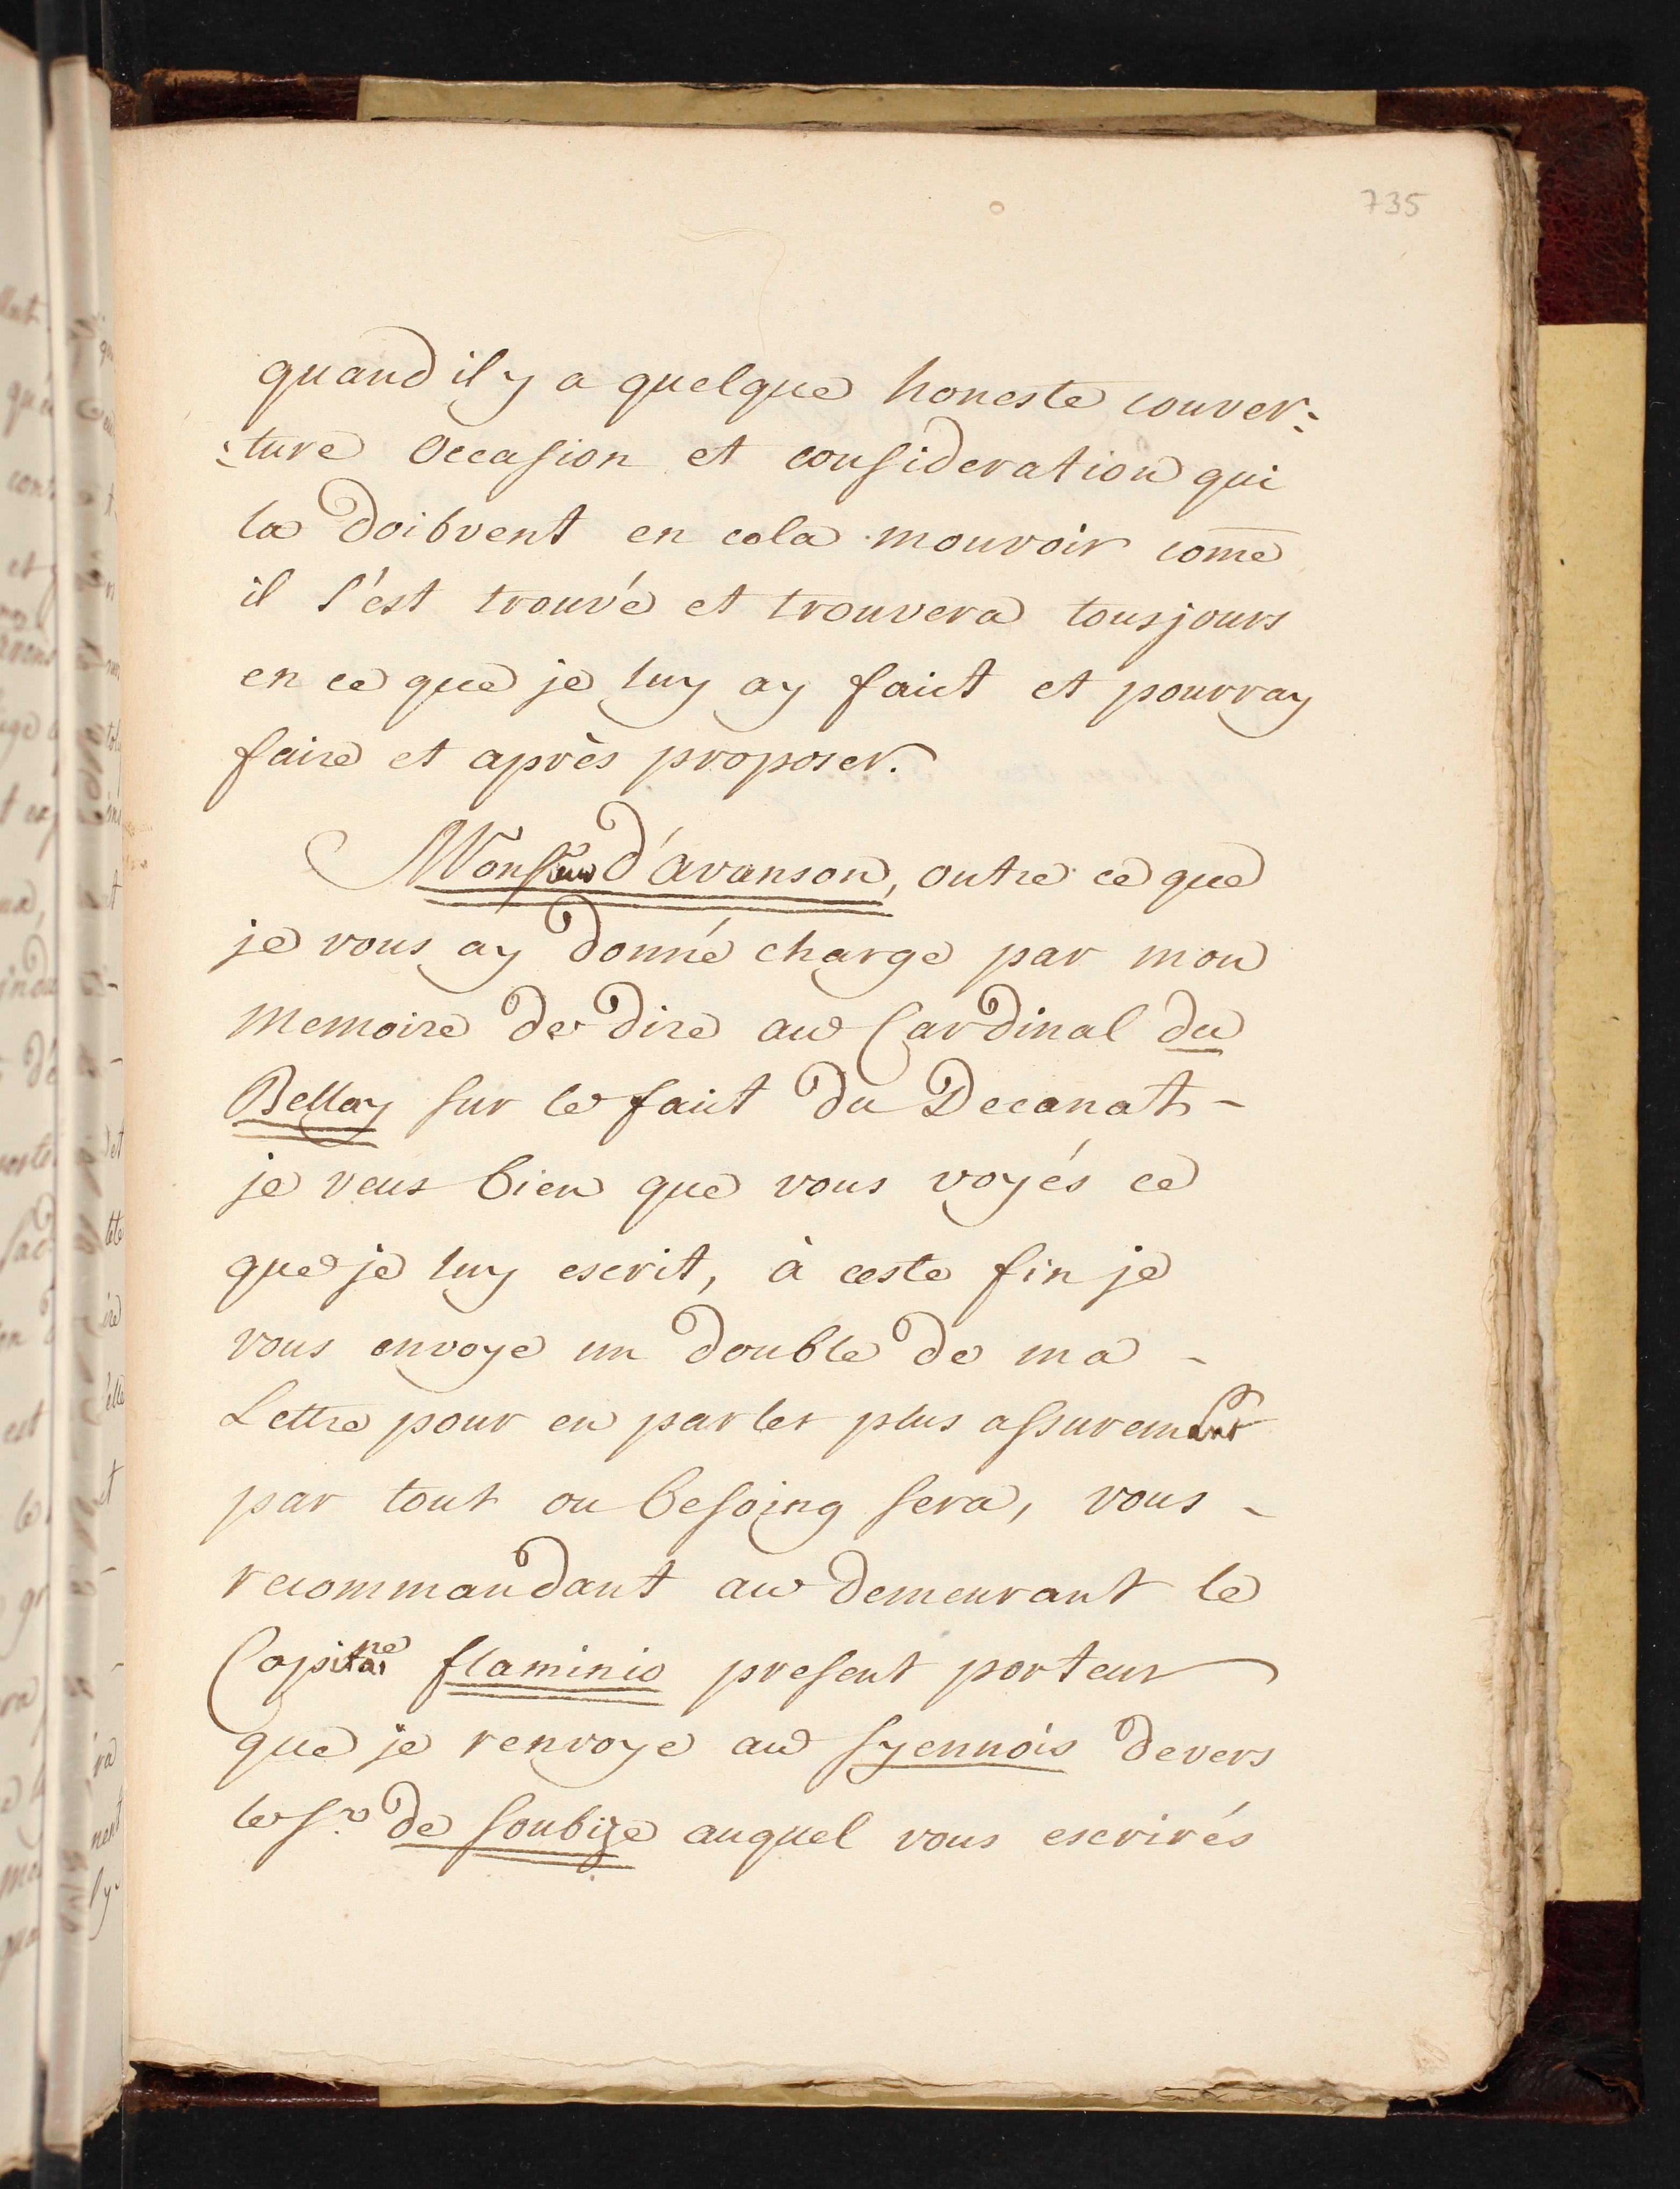 735
quand il y a quelque honeste couver=
=ture Occasion et consideration qui
la doibvent en cela mouvoir come
il s'est trouvé et trouvera tousjours
en ce que je luy ay faict et pourray
faire et après proposer.
Monsieur d'avanson, outre ce que
je vous ay donné charge par mon
memoire de dire au Cardinal du
Bellay sur le faict du Decanat -
je veus bien que vous voyés ce
que je luy escrit, à ceste fin je
vous envoye un double de ma -
Lettre pour en parler plus assurement
par tout ou besoing sera, vous -
recommandant au demeurant le
Capitaine flaminio present porteur
que je renvoye au Syennois devers
le Sr. de Soubize auquel vous escrirés